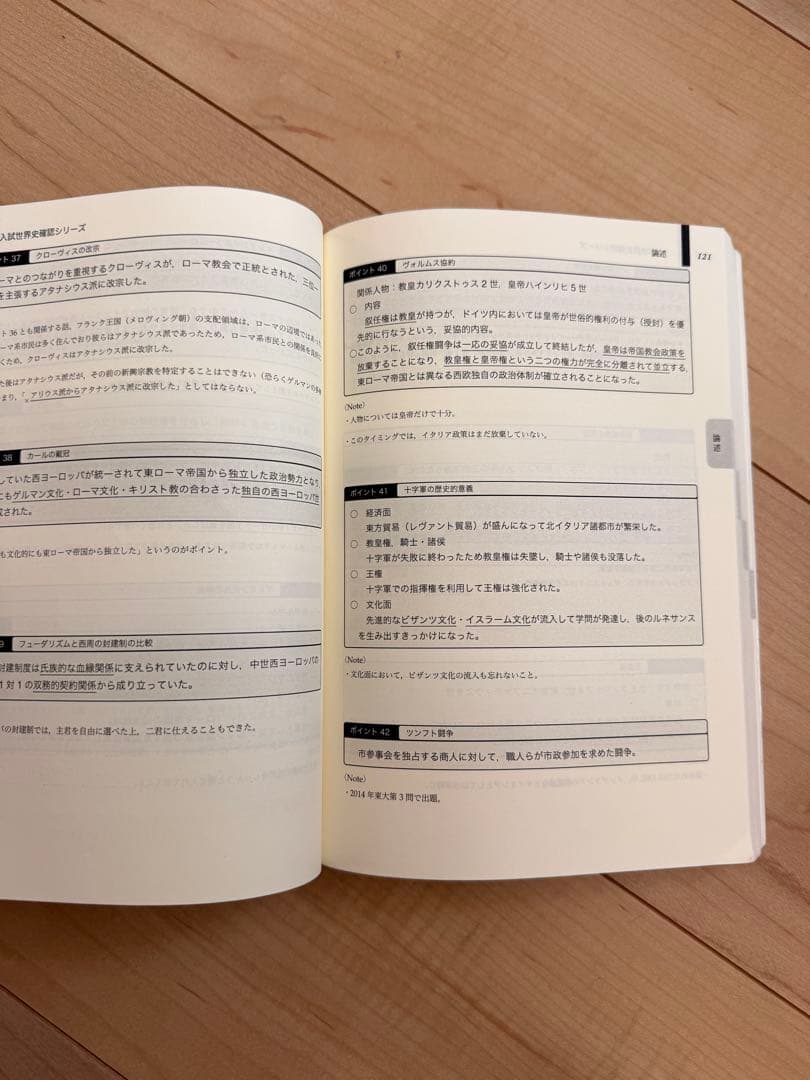 入試世界史確認シリーズ
ント 37 クローヴィスの改宗
ーマとのつながりを重視するクローヴィスが，ローマ教会で正統とされた，三位一
を主張するアタナシウス派に改宗した。
ント 36 とも関係する話，フランク王国（メロヴィング朝）の支配領域は，ローマの辺境ではあった
ーマ系市民は多く住んでおり彼らはアタナシウス派であったため，ローマ系市民との関係を良好
くため，クローヴィスはアタナシウス派に改宗した。
た後はアタナシウス派だが，その前の新興宗教を特定することはできない（恐らくゲルマンの多神
まり，「×アリウス派からアタナシウス派に改宗した」としてはならない。
38 カールの戴冠
していた西ヨーロッパが統一されて東ローマ帝国から独立した政治勢力となり，
にもゲルマン文化・ローマ文化・キリスト教の合わさった独自の西ヨーロッパ世
成された。
も文化的にも東ローマ帝国から独立した」というのがポイント。
9 フューダリズムと西周の封建制の比較
封建制度は氏族的な血縁関係に支えられていたのに対し，中世西ヨーロッパの
1 対 1 の双務的契約関係から成り立っていた。
パの封建制では，主君を自由に選べた上，二君に仕えることもできた。
論述 121
ポイント 40 ヴォルムス協約
関係人物：教皇カリクストゥス 2 世，皇帝ハインリヒ 5 世
○ 内容
叙任権は教皇が持つが，ドイツ内においては皇帝が世俗的権利の付与（授封）を優
先的に行なうという，妥協的内容。
○このように，叙任権闘争は一応の妥協が成立して終結したが，皇帝は帝国教会政策を
放棄することになり，教皇権と皇帝権という二つの権力が完全に分離されて並立する，
東ローマ帝国とは異なる西欧独自の政治体制が確立されることになった。
〈Note〉
・人物については皇帝だけで十分。
・このタイミングでは，イタリア政策はまだ放棄していない。
論述
ポイント 41 十字軍の歴史的意義
○ 経済面
東方貿易（レヴァント貿易）が盛んになって北イタリア諸都市が繁栄した。
○ 教皇権，騎士・諸侯
十字軍が失敗に終わったため教皇権は失墜し，騎士や諸侯も没落した。
○ 王権
十字軍での指揮権を利用して王権は強化された。
○ 文化面
先進的なビザンツ文化・イスラーム文化が流入して学問が発達し，後のルネサンス
を生み出すきっかけになった。
〈Note〉
・文化面において，ビザンツ文化の流入も忘れないこと。
ポイント 42 ツンフト闘争
市参事会を独占する商人に対して，職人らが市政参加を求めた闘争。
〈Note〉
・2014 年東大第 3 問で出題。